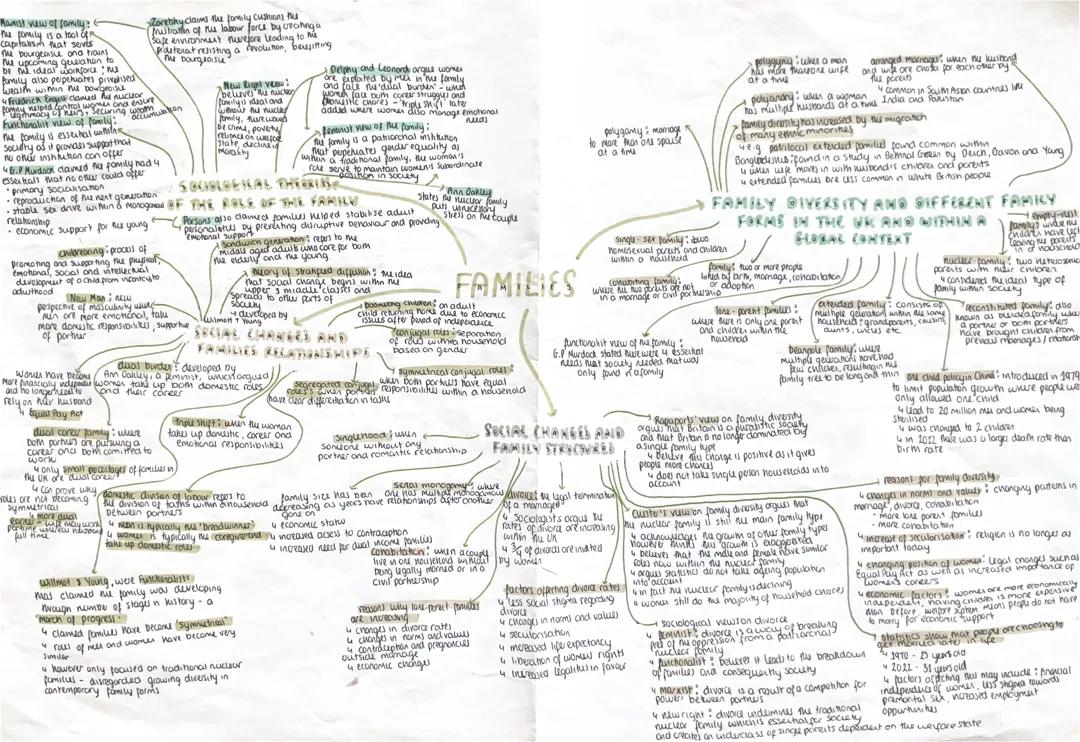 Marxist view of family:
the family is a tool of
capitalism that serves
the bourgeoisie and trains
the upcoming generation to
be the ideal workforce; the
family also perpetuates privileged
wealth within the bourgeoisie
↳ Friedrich Engels claimed the nuclear
family helped control women and ensure
legitimacy of heirs: securing wealth
accumulation
Functionalist view of family:
the family is essential within
society as it provides support that
no other institution can offer
↳ G.P Murdock claimed the family had 4
essentials that no other could offer
• primary socialisation
• reproduction of the next generation
• stable sex drive within a monogamous
relationship
• economic support for the young
Zaretsky claims the family cushions the
frustration of the labour force by creating a
safe environment therefore leading to the
proletariat resisting a revolution, benefitting
the bourgeoisie
New Right view:
believes the nuclear
family is ideal and
without the nuclear
family, there would
be crime, poverty,
reliance on welfare
state, decline in
morality
Delphy and Leonard argue women
are exploited by men in the family
and face the 'dual burden' - which
women face both career struggles and
domestic chores - 'triple shift' later
added where women also manage emotional
needs
feminist view of the family:
the family is a patriarchal institution
that perpetuates gender equality as
within a traditional family, the woman's
role serve to maintain women's subordinate
position in society
Ann Oakley
states the nuclear family
puts unnecessary
stress on the couple
SOCIOLOGICAL THEORIES
OF THE ROLE OF THE FAMILY
Parsons also claimed families helped stabilise adult
personalities by preventing disruptive behaviour and providing
emotional support
FAMILIES
childrearing: process of
promoting and supporting the physical,
emotional, social and intellectual
development of a child from infancy to
adulthood
Sandwich generation: refers to the
middle aged adults who care for both
the elderly and the young
theory of stratified diffusion: the idea
that social change begins within the
upper & middle classes and
spreads to other parts of
society
↳ developed by
Willmott & Young
New Man: new
perspective of masculinity where
men are more emotional, take
more domestic responsibilities, supportive
of partner
boomerang children: an adult
child returning home due to economic
issues after period of independence
SOCIAL CHANGES AND
FAMILIES RELATIONSHIPS
conjugal roles: separation
of roles within a household
based on gender
symmetrical conjugal roles:
when both partners have equal
responsibilities within a household
Segregated conjugal
roles: when partners
have clear differentiation in tasks
dual burden: developed by
Ann Oakley, a feminist, which argued
women take up both domestic roles
and their career
women have become
more financially independent
and no longer need to
rely on their husband
↳ Equal Pay Act
triple shift: when the woman
takes up domestic, career and
emotional responsibilities
dual career family: where
both partners are pursuing a
career and both committed to
work
↳ only small pecetages of families in
the UK are dual career
↳ can prove why
roles are not becoming
symmetrical
↳ more dual
earner - wife may work
part time whereas husband
full time
domestic division of labour refers to
the division of tasks within a household
between partners
↳ men is typically the 'breadwinner'
↳ women is typically the caregiver and
take up domestic roles
Willmott & Young, were functionalists
that claimed the family was developing
through number of stages in history - a
'march of progress'
↳ claimed families have become 'symmetrical'
↳ roles of men and women have become very
similar
↳ however only focused on traditional nuclear
families - disregarded growing diversity in
contemporary family forms
SOCIAL CHANGES AND
FAMILY STRUCTURES
singlehood: when
someone without any
partner and romantic relationship
serial monogamy: when
one has multiple monogamous
relationships after another
family size has been
decreasing as years have
gone on
↳ economic status
↳ increased access to contraception
↳ increased need for dual income families
cohabitation: when a couple
live in one household without
being legally married or in a
civil partnership
reasons why lone-parent families
are increasing
↳ changes in divorce rates
↳ changes in norms and values
↳ contraception and pregnancies
outside marriage
↳ economic changes
divorce: the legal termination
of a marriage
↳ sociologists argue the
rates of divorce are increasing
within the UK
↳ ¾ of divorces are initiated
by women
factors affecting divorce rates
↳ less social stigma regarding
divorce
↳ changes in norms and values
↳ secularisation
↳ increased life expectancy
↳ liberation of women rights
↳ increased legalities in favour
Rapaports' view on family diversity
argues that Britain is a pluralistic society
and that Britain is no longer dominated by
a single family type
↳ believe this change is positive as it gives
people more chances
↳ does not take single person households into
account
Chester's view on family diversity argues that
the nuclear family is still the main family type
↳ acknowledges the growth of other family types
however thinks this growth is exaggerated
↳ believes that the male and female have similar
roles now within the nuclear family
↳ argues statistics do not take ageing population
into account
↳ in fact the nuclear family is declining
↳ women still do the majority of household chores
sociological views on divorce
↳ feminist: divorce is a way of breaking
free of the oppression from a patriarchal
nuclear family
↳ functionalist: believes it leads to the breakdown
of families and consequently society
↳ marxist: divorce is a result of a competition for
power between partners
↳ new right: divorce undermines the traditional
nuclear family which is essential for society
and creates an underclass of single parents dependent on the welfare state
reasons for family diversity
↳ changes in norms and values: changing patterns in
marriage, divorce, cohabitation
• more lone parent families
• more cohabitation
↳ increase of secularisation: religion is no longer as
important today
↳ changing position of women: legal changes such as
Equal Pay Act as well as increased importance of
women's careers
↳ economic factors: women are more economically
independent, having children is more expensive
than before, welfare system means people do not have
to marry for economic support
statistics show that people are choosing to
get married later in life
↳ 1970 - 23 years old
↳ 2022 - 31 years old
↳ factors affecting this may include: financial
independence of women, less stigma towards
premarital sex, increased employment
oppurtunities
FAMILY DIVERSITY AND DIFFERENT FAMILY
FORMS IN THE UK AND WITHIN A
GLOBAL CONTEXT
polygamy: marriage
to more than one spouse
at a time
polygyny: when a man
has more than one wife
at a time
polyandry: when a woman
has multiple husbands at a time
arranged marriages: when the husband
and wife are chosen for each other by
the parents
↳ common in South Asian countries like
India and Pakistan
family diversity has increased by the migration
of many ethnic minorities
↳ e.g. patrilocal extended families found common within
Bangladeshies: found in a study in Bethnal Green by Dench, Gavon and Young
↳ when wife moves in with husband's children and parents
↳ extended families are less common in White British people
single-sex family: two
homosexual parents and children
within a household
cohabiting family:
where the two parents are not
in a marriage or civil partnership
family: two or more people
linked by birth, marriage, cohabitation
or adoption
lone-parent families:
where there is only one parent
and children within the
household
functionalist view of the family:
G.P Murdock stated there were 4 essential
needs that society needed that was
only found in a family
extended family: consists of
multiple generations within the same
household: grandparents, cousins,
aunts, uncles etc.
beanpole family: where
multiple generations have had
few children, resulting in the
family tree to be long and thin
nuclear family: two heterosexual
parents with their children
↳ considered the ideal type of
family within society
empty-nest
family: where the
children have left
leaving the parents
in a household
reconstituted family: also
known as blended family where
a partner or both partners
have brought children from
previous marriages/relationships
one child policy in China: introduced in 1979
to limit population growth where people were
only allowed one child
↳ lead to 20 million men and women being
sterilised
↳ was changed to 2 children
↳ in 2022 there was a larger death rate than
birth rate